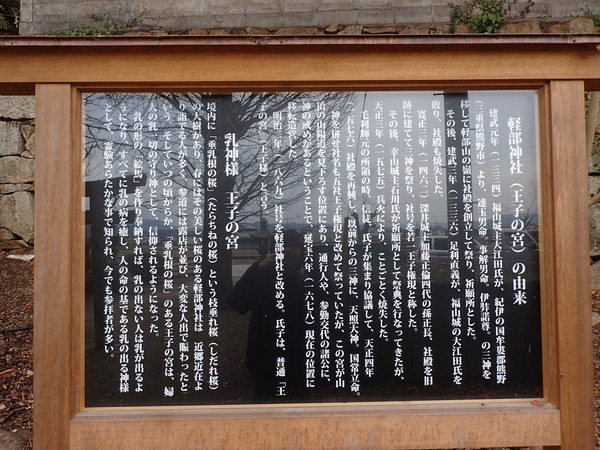 軽部神社(王子の宮)の由来
建武元年(一三三四)福山城主大江田氏が、紀伊の国牟婁郡熊野
(三重県熊野市)より、速玉男命、事解男命、伊弉諾尊、の三神を
移して軽部山の嶺に社殿を創立して祭り、祈願所とした。
その後、建武三年(一三三六)足利直義が、福山城の大江田氏を
敗り、社殿を焼失した。
寛正三年(一四六二)深井城主加藤正倫四代の孫正長、社殿を旧
跡に建てて三神を祭り、社号を若一王子権現と称した。
その後、幸山城主石川氏が祈願所として祭典を行なってきたが、
天正三年(一五七五)兵火により、ことごとく焼失した。
毛利輝元の所領の時、信長、氏子が集まり協議して、天正四年
(一五七六)社殿を再興し、以前からの三神に、天照大神、国常立命。
神を併せ社名も五社王子権現と改めて祭っていたが、この宮が山
頂で山陽道を見下ろす位置にあり、通行人や、参勤交代の諸公に、
神の戒めがあるということで、延宝六年(一六七八)現在の位置に
移転造営した。
明治二年(一八六九)社号を軽部神社と改める。氏子は、普通「王
子の宮(王子様)と言う。
乳神様 王子の宮
境内に「垂乳根の桜」(たらちねの桜)という枝垂れ桜(しだれ桜)
の大樹があり、春にはその美しい桜のある軽部神社は 近郷近在よ
り詣でる人が多く、参道には露店が並び、大変な人出で賑わったと
いう。そしていつの頃からか、「垂乳根の桜」のある王子の宮は、婦
人の乳一切の守り神として、信仰されるようになった。
乳の形の「絵馬」を作り奉納すれば、乳の出ない人は乳が出るよ
うになり、すべてに乳の病を癒し、人の命の基である乳の出る神様
として、霊験あらたかな事で知られ、今でも参拝者が多い。